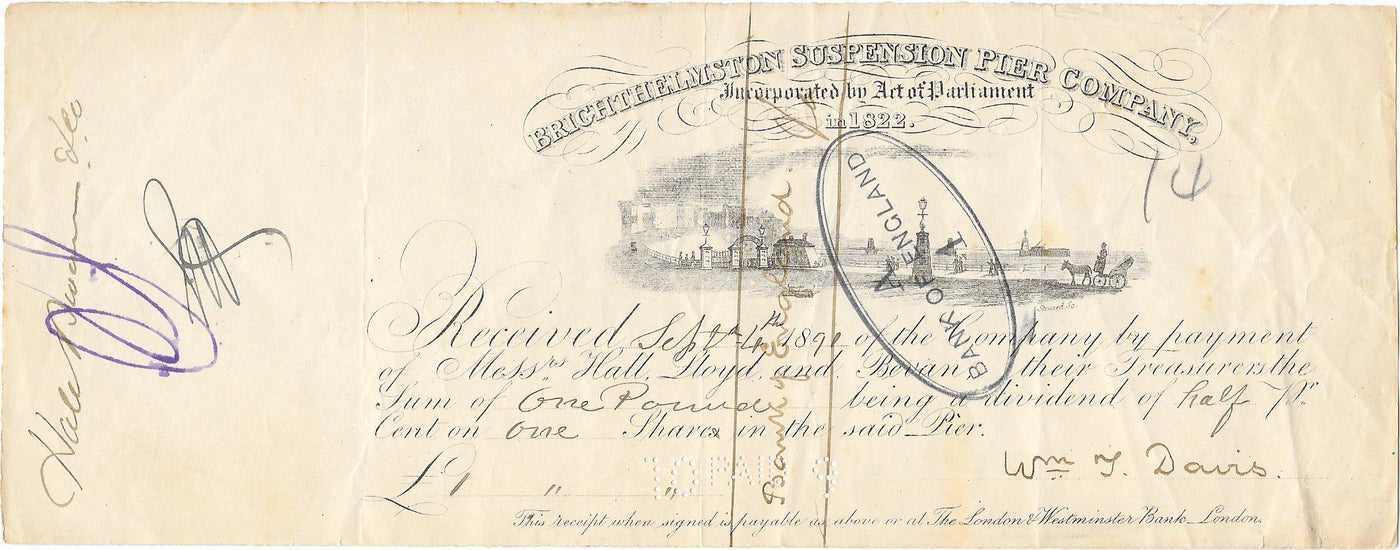 BRIGHTHELMSTON SUSPENSION PIER COMPANY,
Incorporated by Act of Parliament
in 1822.
14
BANK OF ENGLAND
A 1
Bank of England
Received Septr 4th 1890 of the Company by payment
of Messrs Hall, Lloyd, and Bevan their Treasurers the
Sum of One Pound being a dividend of half Pr
Cent on One Shares in the said Pier.
£1 " "
PAID
Wm T. Davis.
This receipt when signed is payable as above or at The London & Westminster Bank London.